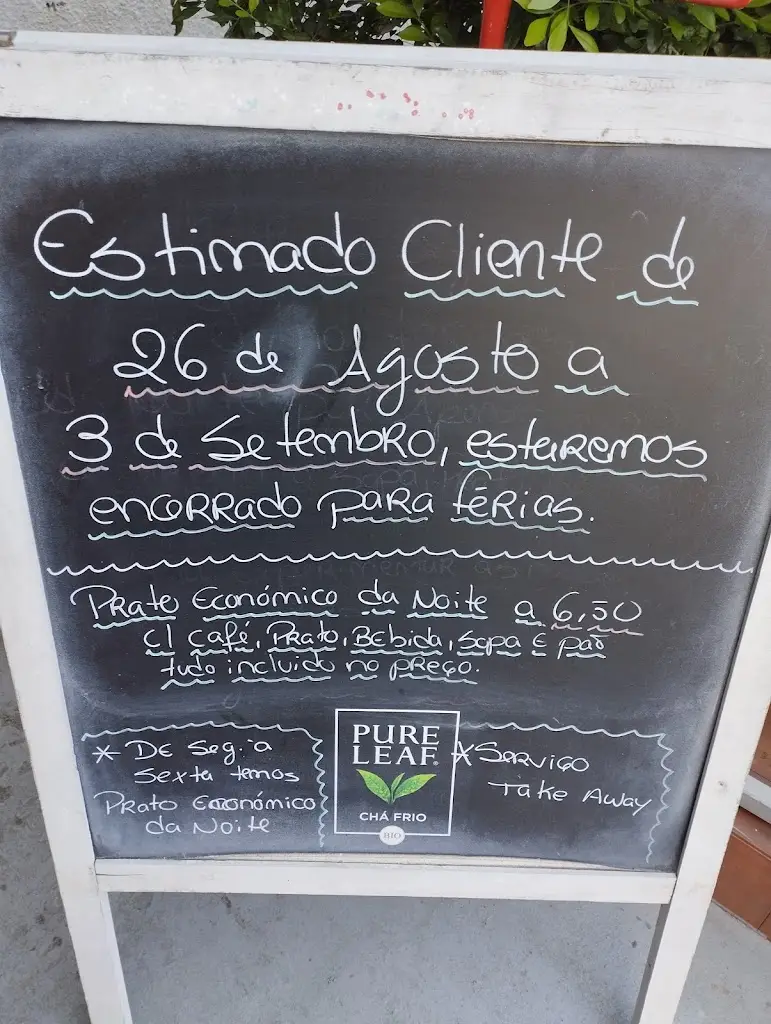 Estimado Cliente de
26 de Agosto a
3 de Setembro, estaremos
encerrado para férias.
Prato Económico da Noite a 6,50
c/ café, Prato, Bebida, Sopa e pão
tudo incluido no preço.
* De Seg. a
Sexta temos
Prato Económico
da Noite
PURE
LEAF
CHÁ FRIO
BIO
* Serviço
Take Away